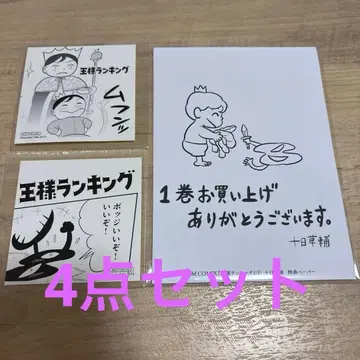 王様ランキング
ムフンッ
王様ランキング
ボッジいいぞ!
いいぞ!
1巻お買い上げ
ありがとうございます。
十日草輔
特典ペーパー
4点セット